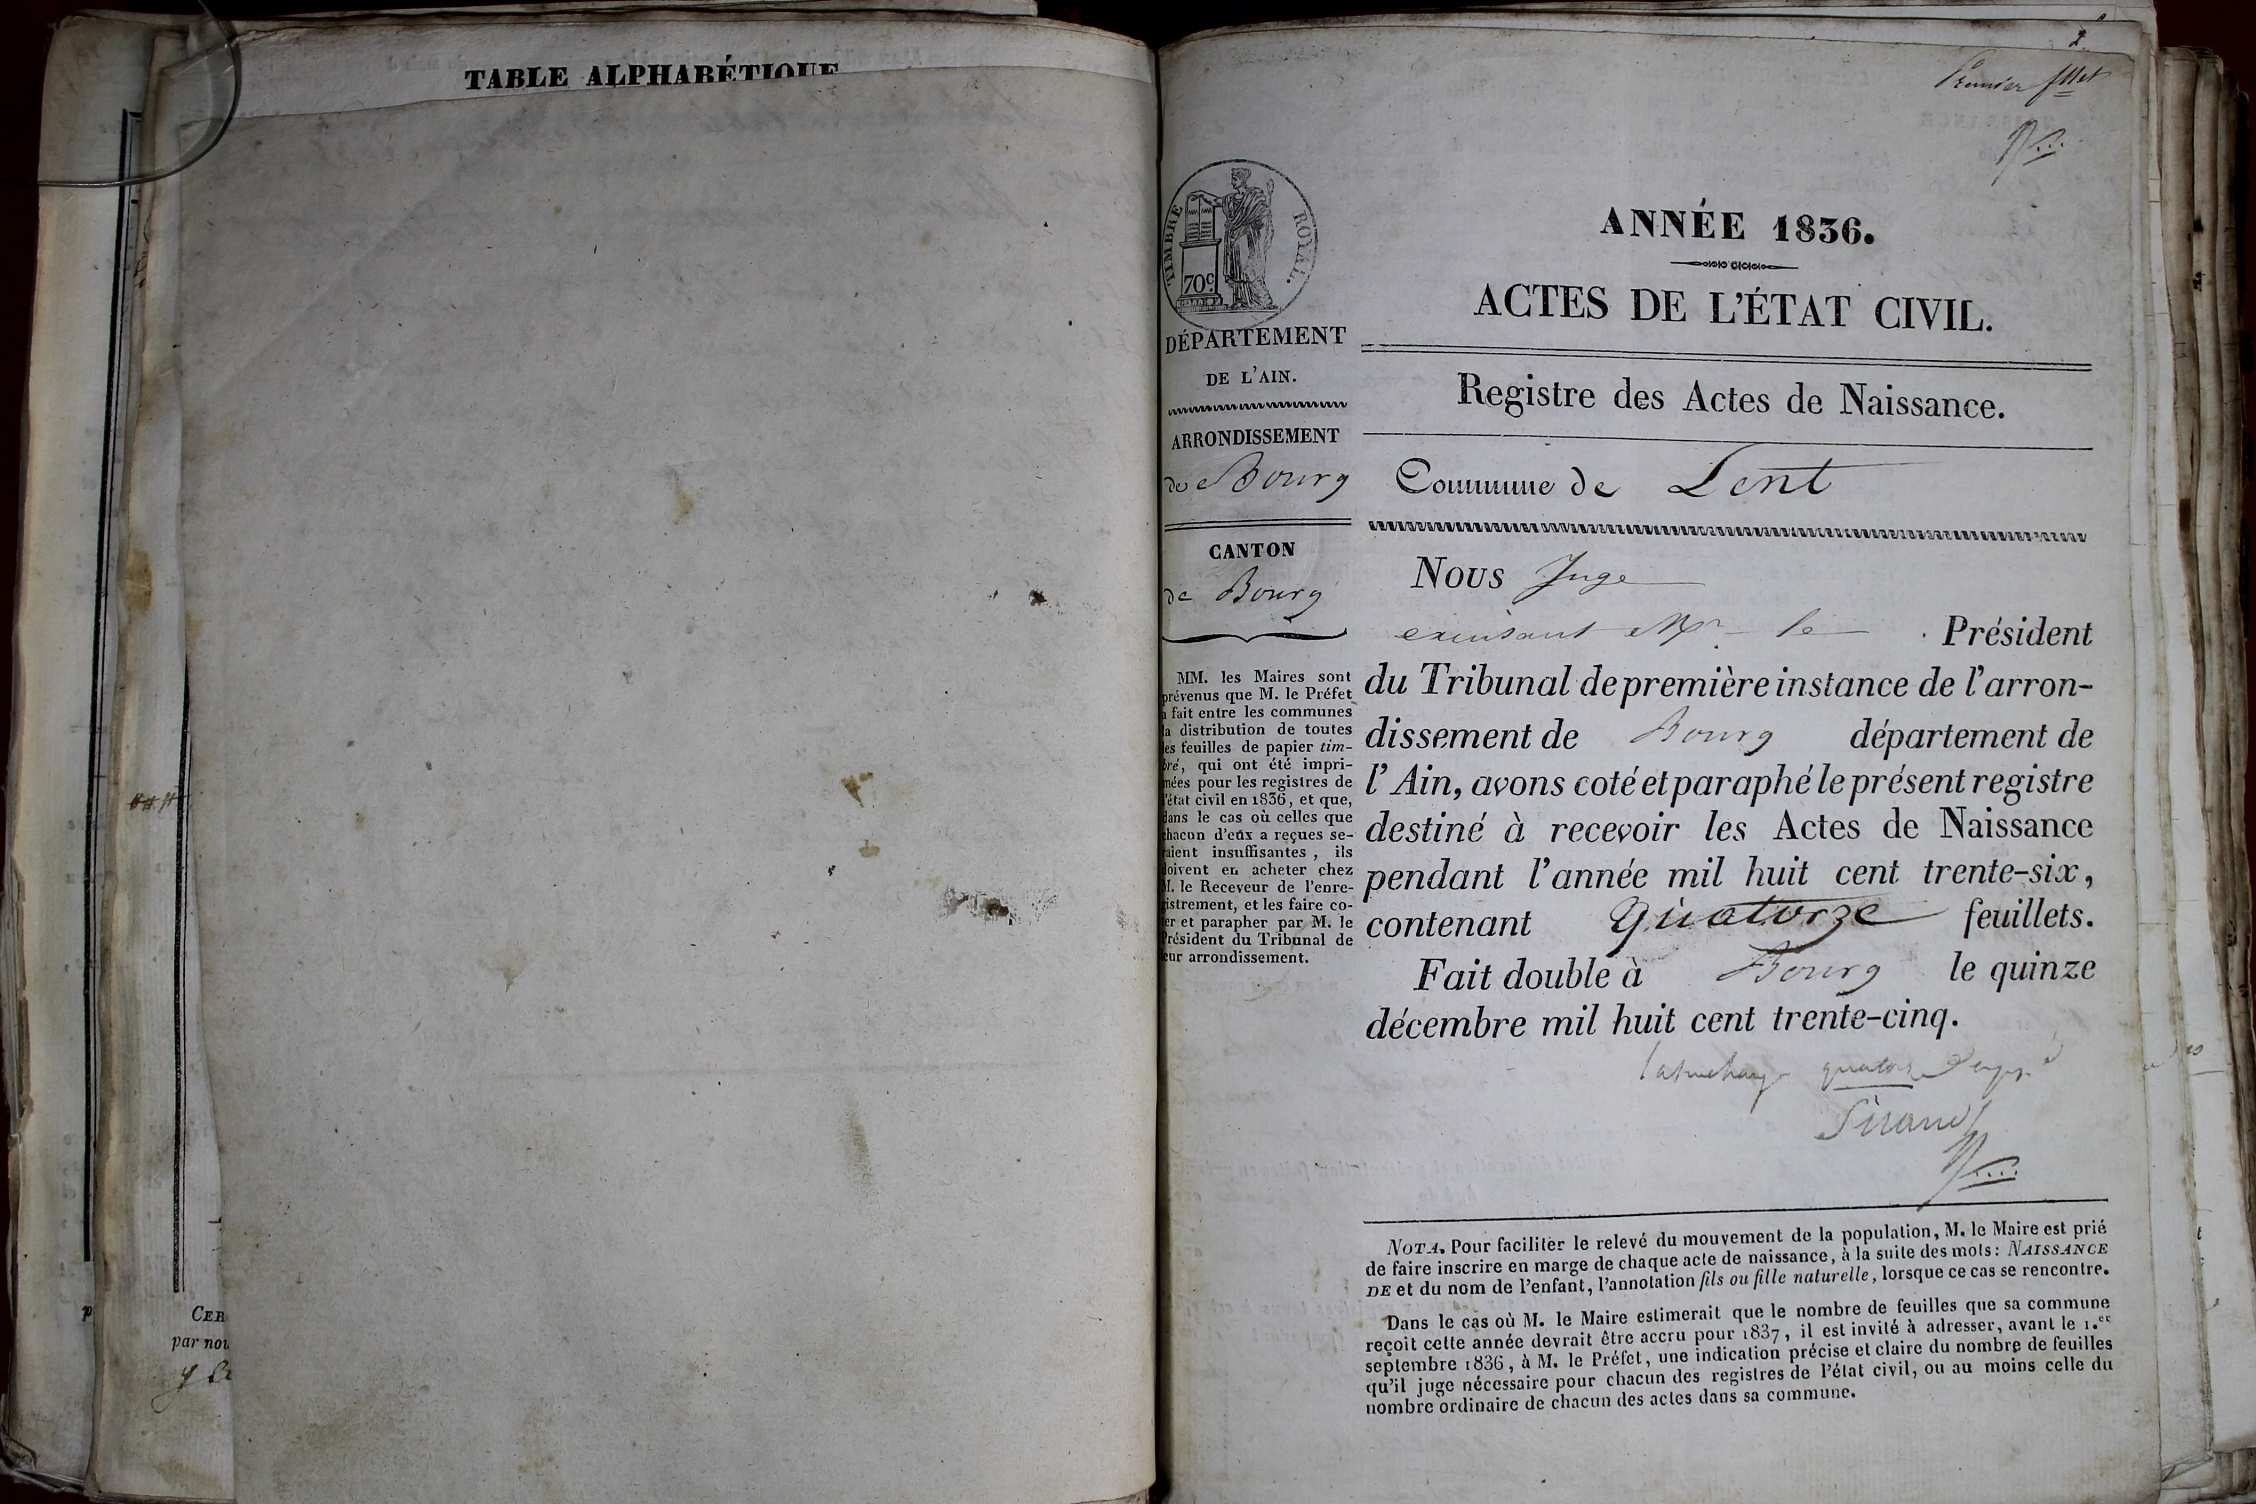 TABLE ALPHABÉTIQUE
CER
par nou
2
Premier fllet
TIMBRE ROYAL.
70c
DÉPARTEMENT
DE L'AIN.
ARRONDISSEMENT
de Bourg
CANTON
de Bourg
MM. les Maires sont
prévenus que M. le Préfet
a fait entre les communes
la distribution de toutes
les feuilles de papier tim-
bré, qui ont été impri-
mées pour les registres de
l'état civil en 1836, et que,
dans le cas où celles que
chacun d'eux a reçues se-
raient insuffisantes, ils
doivent en acheter chez
M. le Receveur de l'enre-
gistrement, et les faire co-
ter et parapher par M. le
Président du Tribunal de
leur arrondissement.
ANNÉE 1836.
ACTES DE L'ÉTAT CIVIL.
Registre des Actes de Naissance.
Commune de Lent
Nous Juge
Mr le Président
du Tribunal de première instance de l'arron-
dissement de Bourg département de
l'Ain, avons coté et paraphé le présent registre
destiné à recevoir les Actes de Naissance
pendant l'année mil huit cent trente-six,
contenant Quatorze feuillets.
Fait double à Bourg le quinze
décembre mil huit cent trente-cinq.
quatorze
Sirand
NOTA. Pour faciliter le relevé du mouvement de la population, M. le Maire est prié
de faire inscrire en marge de chaque acte de naissance, à la suite des mots: NAISSANCE
DE et du nom de l'enfant, l'annotation fils ou fille naturelle, lorsque ce cas se rencontre.
Dans le cas où M. le Maire estimerait que le nombre de feuilles que sa commune
reçoit cette année devrait être accru pour 1837, il est invité à adresser, avant le 1.er
septembre 1836, à M. le Préfet, une indication précise et claire du nombre de feuilles
qu'il juge nécessaire pour chacun des registres de l'état civil, ou au moins celle du
nombre ordinaire de chacun des actes dans sa commune.